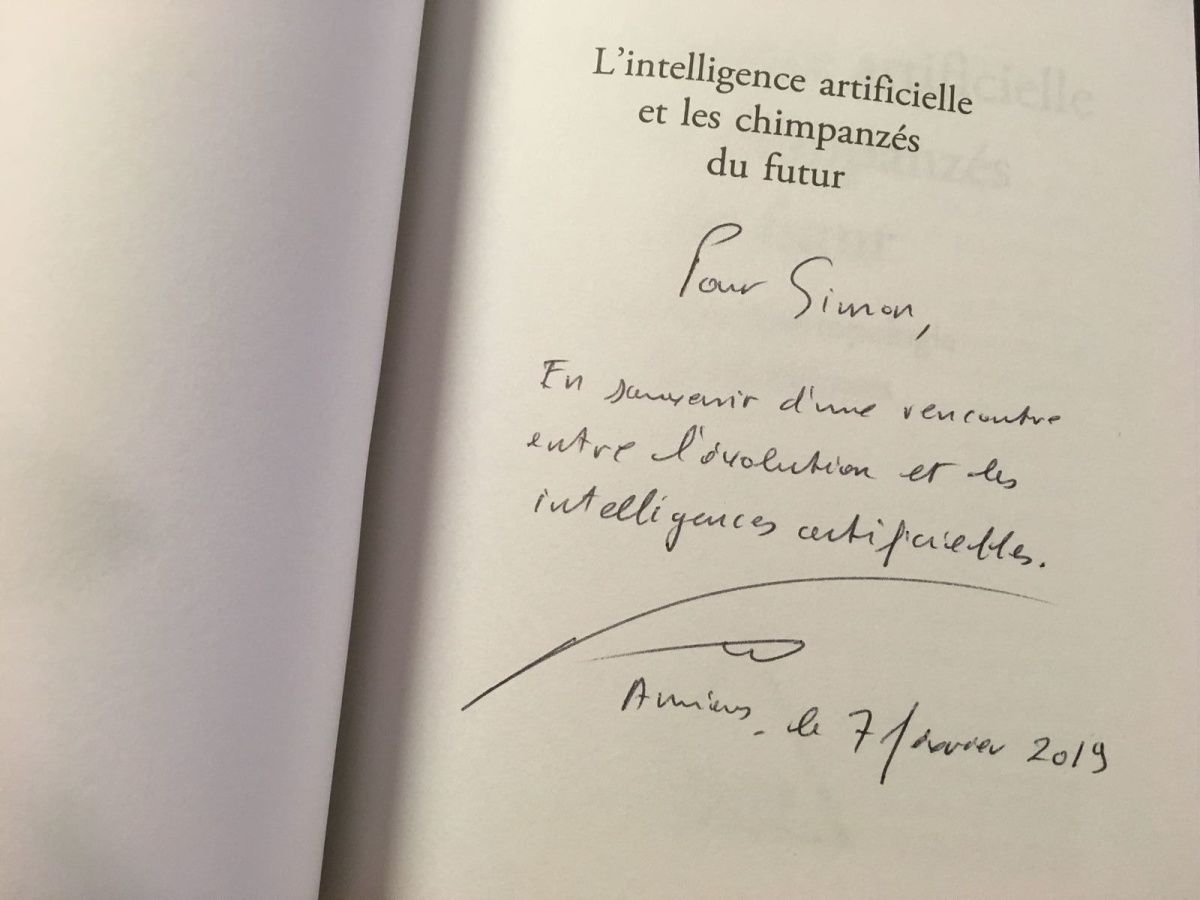 L'intelligence artificielle
et les chimpanzés
du futur
Pour Simon,
En souvenir d'une rencontre
entre l'évolution et les
intelligences artificielles.
Amiens, le 7 février 2019